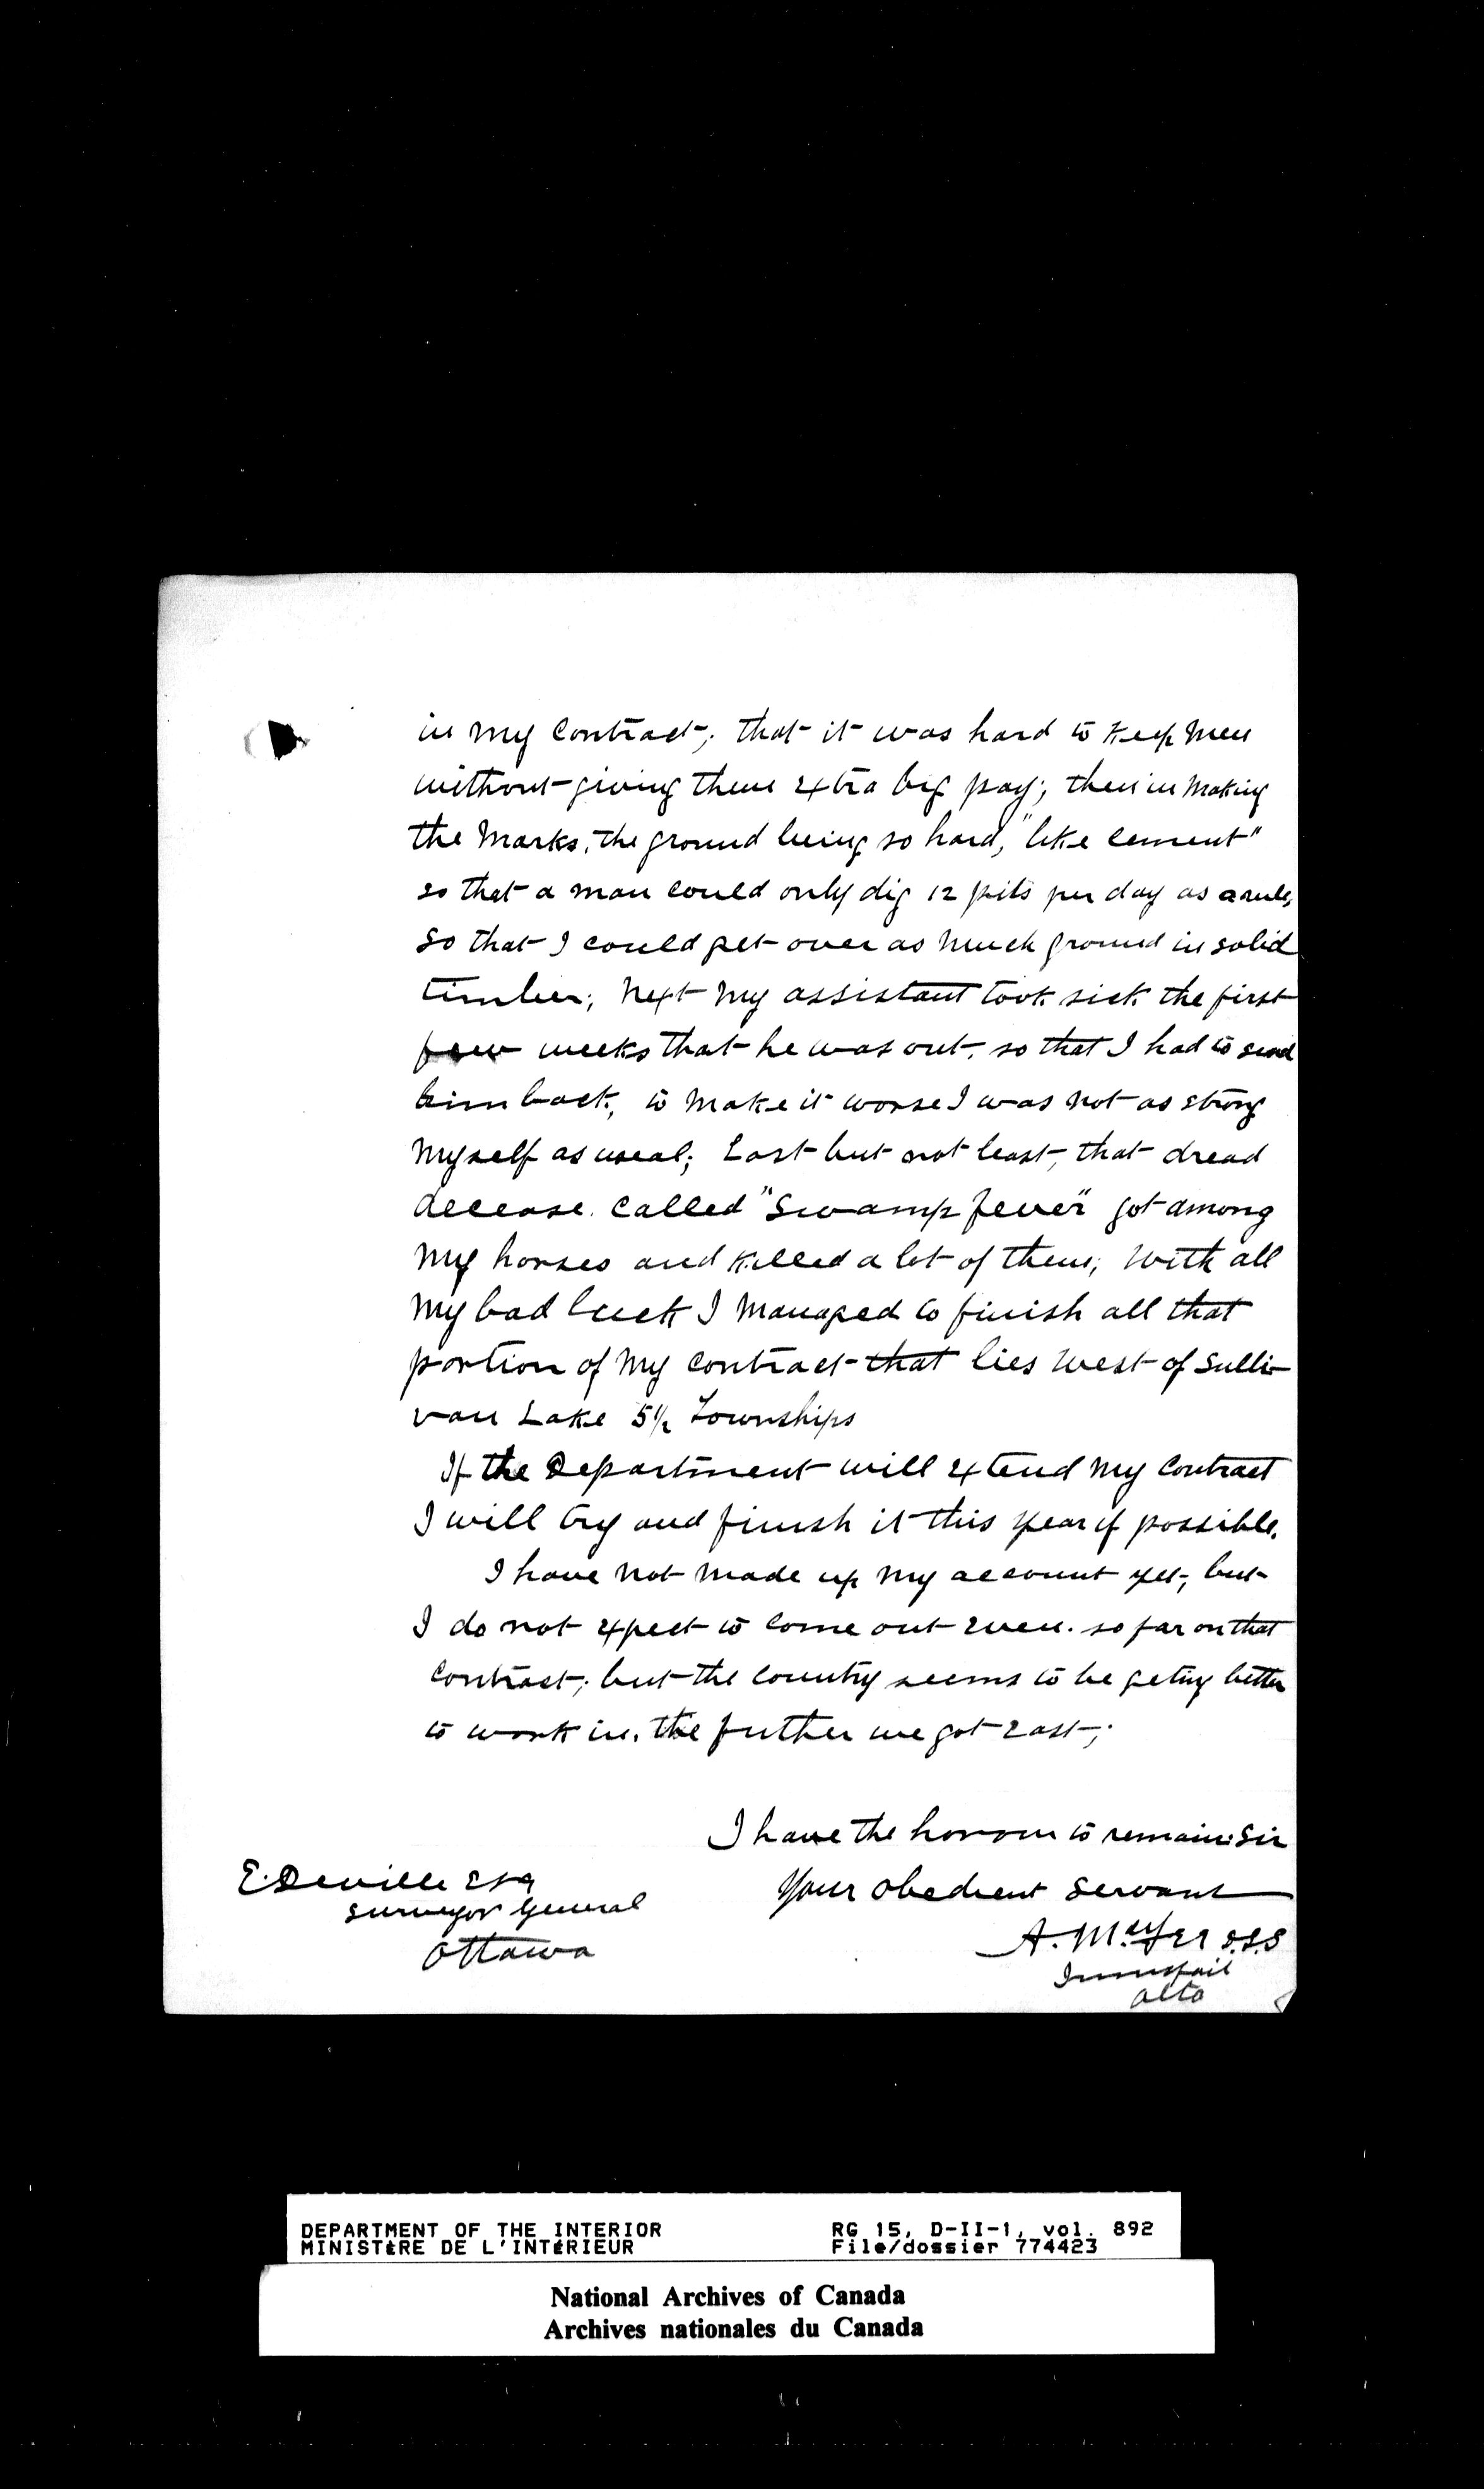 in my contract; that it was hard to keep men
without giving them extra big pay; then in making
the marks, the ground being so hard, "like cement"
so that a man could only dig 12 pits per day as a rule,
so that I could get over as much ground in solid
timber; next my assistant took sick the first
few weeks that he was out, so that I had to send
him back, to make it worse I was not as strong
myself as useal; Last but not least, that dread
decease called "Swamp fever" got among
my horses and killed a lot of them; with all
my bad luck I managed to finish all that
portion of my contract that lies west of Sulli-
van Lake 5½ Townships
If the Department will extend my contract
I will try and finish it this year if possible.
I have not made up my account yet, but
I do not expect to come out even so far on that
contract; but the country seems to be geting better
to work in, the futher we got east;
I have the honour to remain Sir
Your obedient Servant
E. Deville Esq
Surveyor General
Ottawa
A. D.L.S
Innisfail
Alta
DEPARTMENT OF THE INTERIOR
MINISTÈRE DE L'INTÉRIEUR
RG 15, D-II-1, vol. 892
File/dossier 774423
National Archives of Canada
Archives nationales du Canada